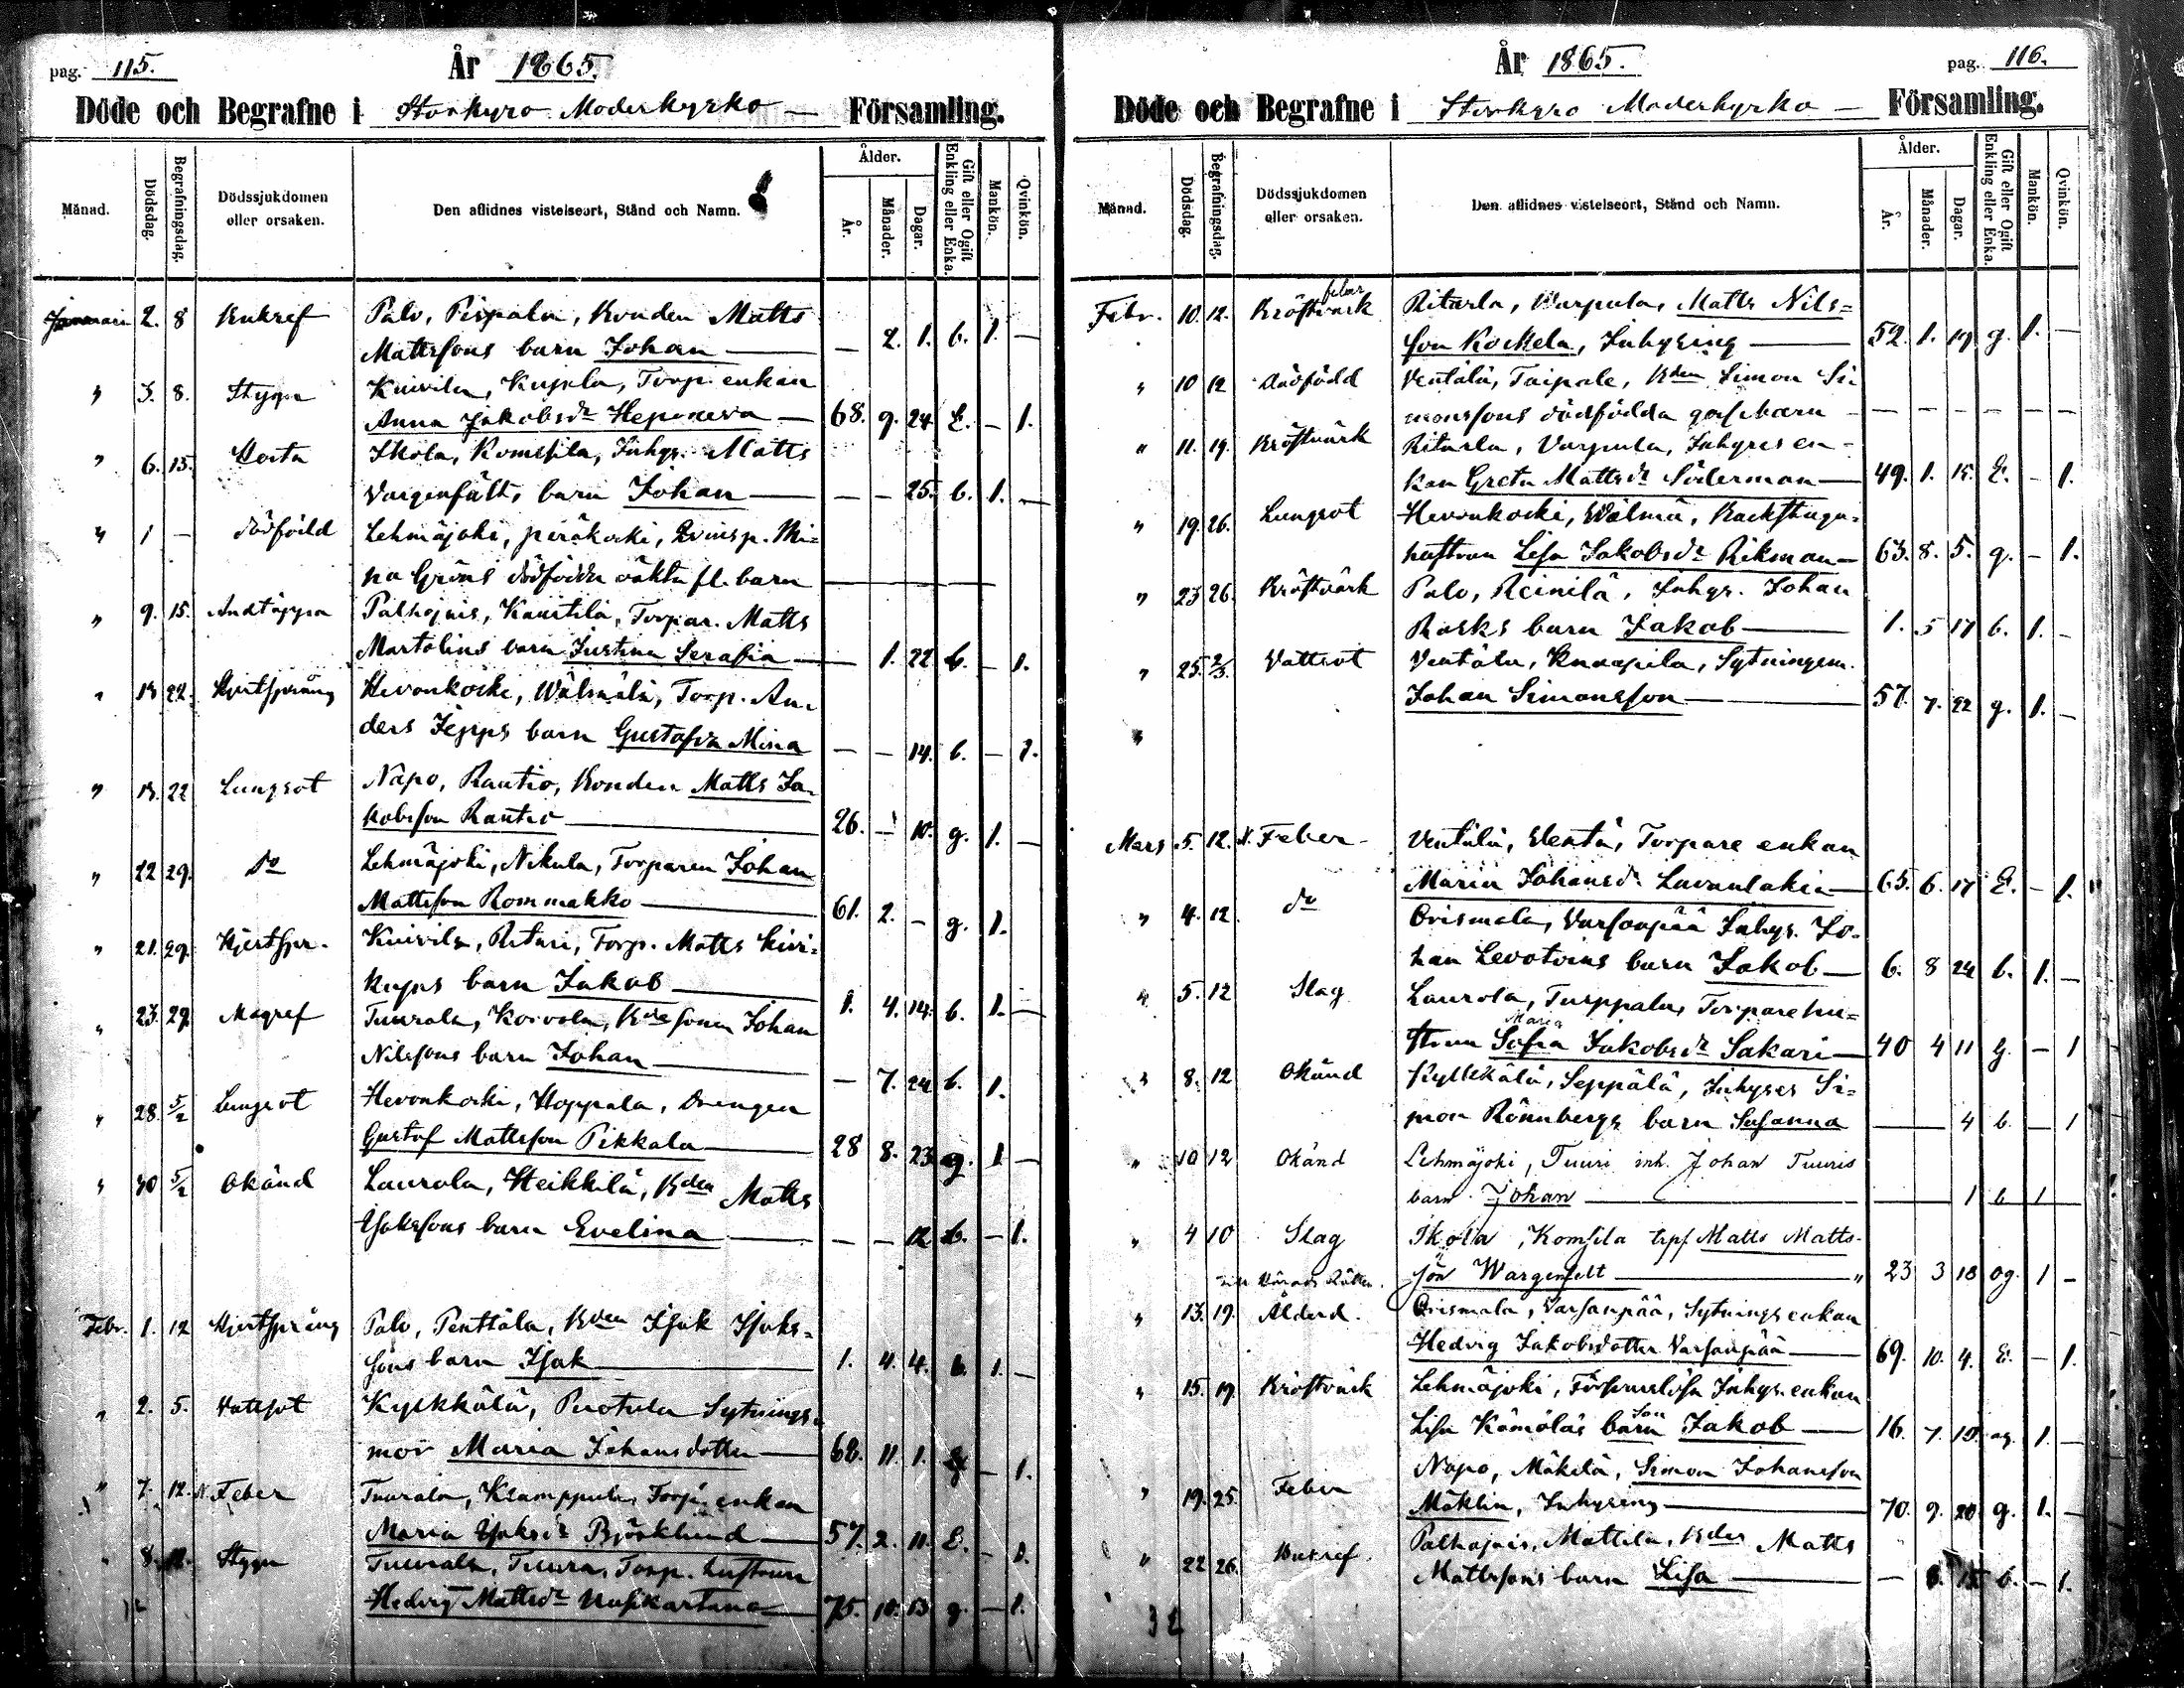 pag. 115.
År 1865.
Döde och Begrafne i Storkyro Moderkyrko Församling.
Månad. Dödsdag. Begrafningsdag. Dödssjukdomen eller orsaken. Den aflidnes vistelseort, Stånd och Namn. Ålder. År. Månader. Dagar. Gift eller Ogift Enkling eller Enka. Mankön. Qvinkön.
Januari 2. 8 Bukref Palo, Pispala, Bonden Matts
Mattssons barn Johan — — 2. 1. b. 1. —
" 3. 8. Stygn Kuivila, Kujala, Torp. enkan
Anna Jakobsdr Heponeva — 68. 9. 24 E. — 1.
" 6. 15. Hosta Ikola, Komsila, Inhys. Matts
Vargenfält, barn Johan — — — 25. b. 1. —
" 1 — dödfödd Lehmäjoki, peräkoski, Qvinsp. Mi=
na Gröns dödfödda oäkta fl. barn —
" 9. 15. Andtäppa Palhojais, Kaurtila, Torpar. Matts
Martolins barn Justina Serafia — — 1. 22 b. — 1.
" 15 22. Hjertsprång Hevonkoski, Wälmälä, Torp. An-
ders Jepps barn Gustafva Mina — — 14. b. — 1.
" 15. 22 Lungsot Napo, Rautio, Bonden Matts Ja-
kobsson Rautio — 26. — 10. g. 1. —
" 22 29. do Lehmäjoki, Nikula, Torparen Johan
Mattsson Rommakko — 61. 2. — g. 1.
" 21. 29. Hjertspr. Kuivila, Rituri, Torp. Matts Kivi-
kujas barn Jakob — 1. 4. 14. b. 1. —
" 23. 29. Magref Tuurala, Koivola, Bde sonen Johan
Nilssons barn Johan — — 7. 24 b. 1.
" 28. 5/2 Lungsot Hevonkoski, Hoppala, Drengen
Gustaf Mattsson Pikkala — 28 8. 23 g. 1 —
" 30 5/2 Okänd Laurola, Heikkilä, Bden Matts
Isakssons barn Evelina — — — 12 b. — 1.
Febr. 1. 12 Hjertsprång Palo, Penttäla, Bden Isak Isaks=
sons barn Isak — 1. 4. 4. b. 1. —
" 2. 5. Vattsot Kylkkälä, Puotula Sytnings-
mor Maria Johansdotter — 68. 11. 1. g — 1.
" 7. 12. N. Feber Tuurala, Kramppula, Torp. enkan
Maria Isaksdr Björklund — 57. 2. 11. E. — 1.
" 8. 12. Stygn Tuurala, Tuura, Torp. hustrun
Hedvig Mattsdr Uusikartano — 75. 10. 13 g. — 1.
År 1865.
pag. 116.
Döde och Begrafne i Storkyro Moderkyrko — Församling.
Månad. Dödsdag. Begrafningsdag. Dödssjukdomen eller orsaken. Den aflidnes vistelseort, Stånd och Namn. Ålder. År. Månader. Dagar. Gift eller Ogift Enkling eller Enka. Mankön. Qvinkön.
feber
Febr. 10. 12. Bröstvärk Ritarla, Warpula, Matts Nils=
son Kockela, Inhysing — 52. 1. 19 g. 1. —
" 10 12 dödfödd Ventälä, Taipale, Bden Simon Si-
monssons dödfödda gossebarn — — — — — —
" 11. 19. Bröstvärk Ritarla, Varpula, Inhyses en-
kan Greta Mattsdr Söderman — 49. 1. 15. E. — 1.
" 19. 26. Lungsot Hevonkoski, Wälmä, Backstugu-
hustrun Lisa Jakobsdr Rikman — 63. 8. 5. g. — 1.
" 23 26. Bröstvärk Palo, Reinilä, Inhys. Johan
Rasks barn Jakob — 1. 5 17 b. 1. —
" 25. 2/3. Vattsot Ventäla, Knaapila, Sytningsm.
Johan Simonsson — 57. 7. 22 g. 1. —
"
Mars 5. 12. N. Feber Ventälä, Elentä, Torpare enkan
Maria Johansdr. Luvanlakia — 65. 6. 17 E. — 1.
" 4. 12. do Orismala, Varsanpää Inhys. Jo-
han Levotvins barn Jakob — 6. 8 24 b. 1. —
" 5. 12 Slag Laurola, Turppala, Torpare hu=
Maria
strun Sofia Jakobsdr Sakari — 40 4 11 g. — 1
" 8. 12 Okänd Kylkkälä, Seppälä, Inhyses Si=
mon Rönnbergs barn Susanna — 4 b. — 1
" 10 12 Okänd Lehmäjoki, Tuuri inh. Johan Tuuris
barn Johan — 1 b 1
" 4 10 Slag Ikola, Komsila trps Matts Matts-
son Wargenfelt — " 23 3 18 og. 1 —
" 13. 19. Ålderd. Orismala, Varsanpää, Sytnings enkan
Hedvig Jakobsdotter Varsanpää — 69. 10. 4. E. — 1.
" 15. 19. Bröstvärk Lehmäjoki, Försvarslösa Inhys. enkan
son
Lisa Kämöläs barn Jakob — 16. 7. 15. og. 1. —
" 19. 25. Feber Napo, Mäkelä, Simon Johansson
Mäklin, Inhysing — 70. 9. 20 g. 1. —
" 22 26. Bukref. Palhojais, Mattila, Bden Matts
Mattssons barn Lisa — — 15 b. — 1.
32